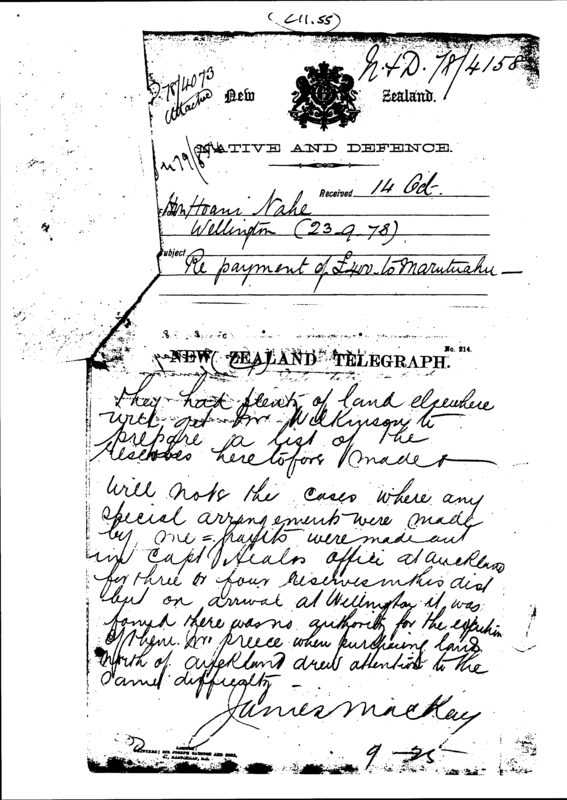 (L11.55)
N. & D. 78/4158
78/4073
attached
New Zealand.
NATIVE AND DEFENCE.
Received 14 Oct.
Hon Hoani Nahe
Wellington (23-9-78)
Subject
Re payment of £400 to Marutuahu —
No. 214.
NEW ZEALAND TELEGRAPH.
they had plenty of land elsewhere
will get Mr Wilkinson to
prepare a list of the
reserves heretofore made &
will note the cases where any
special arrangements were made
by me = were made out
in Capt Heales office at Auckland
for three or four reserves in this dist
but on arrival at Wellington it was
found there was no authority for the execution
of them. Mr Preece when purchasing land
north of Auckland drew attention to the
same difficulty
James Mackay
9-25
LONDON:
PRINTERS: SIR JOSEPH CAUSTON AND SONS,
47, EASTCHEAP, E.C.